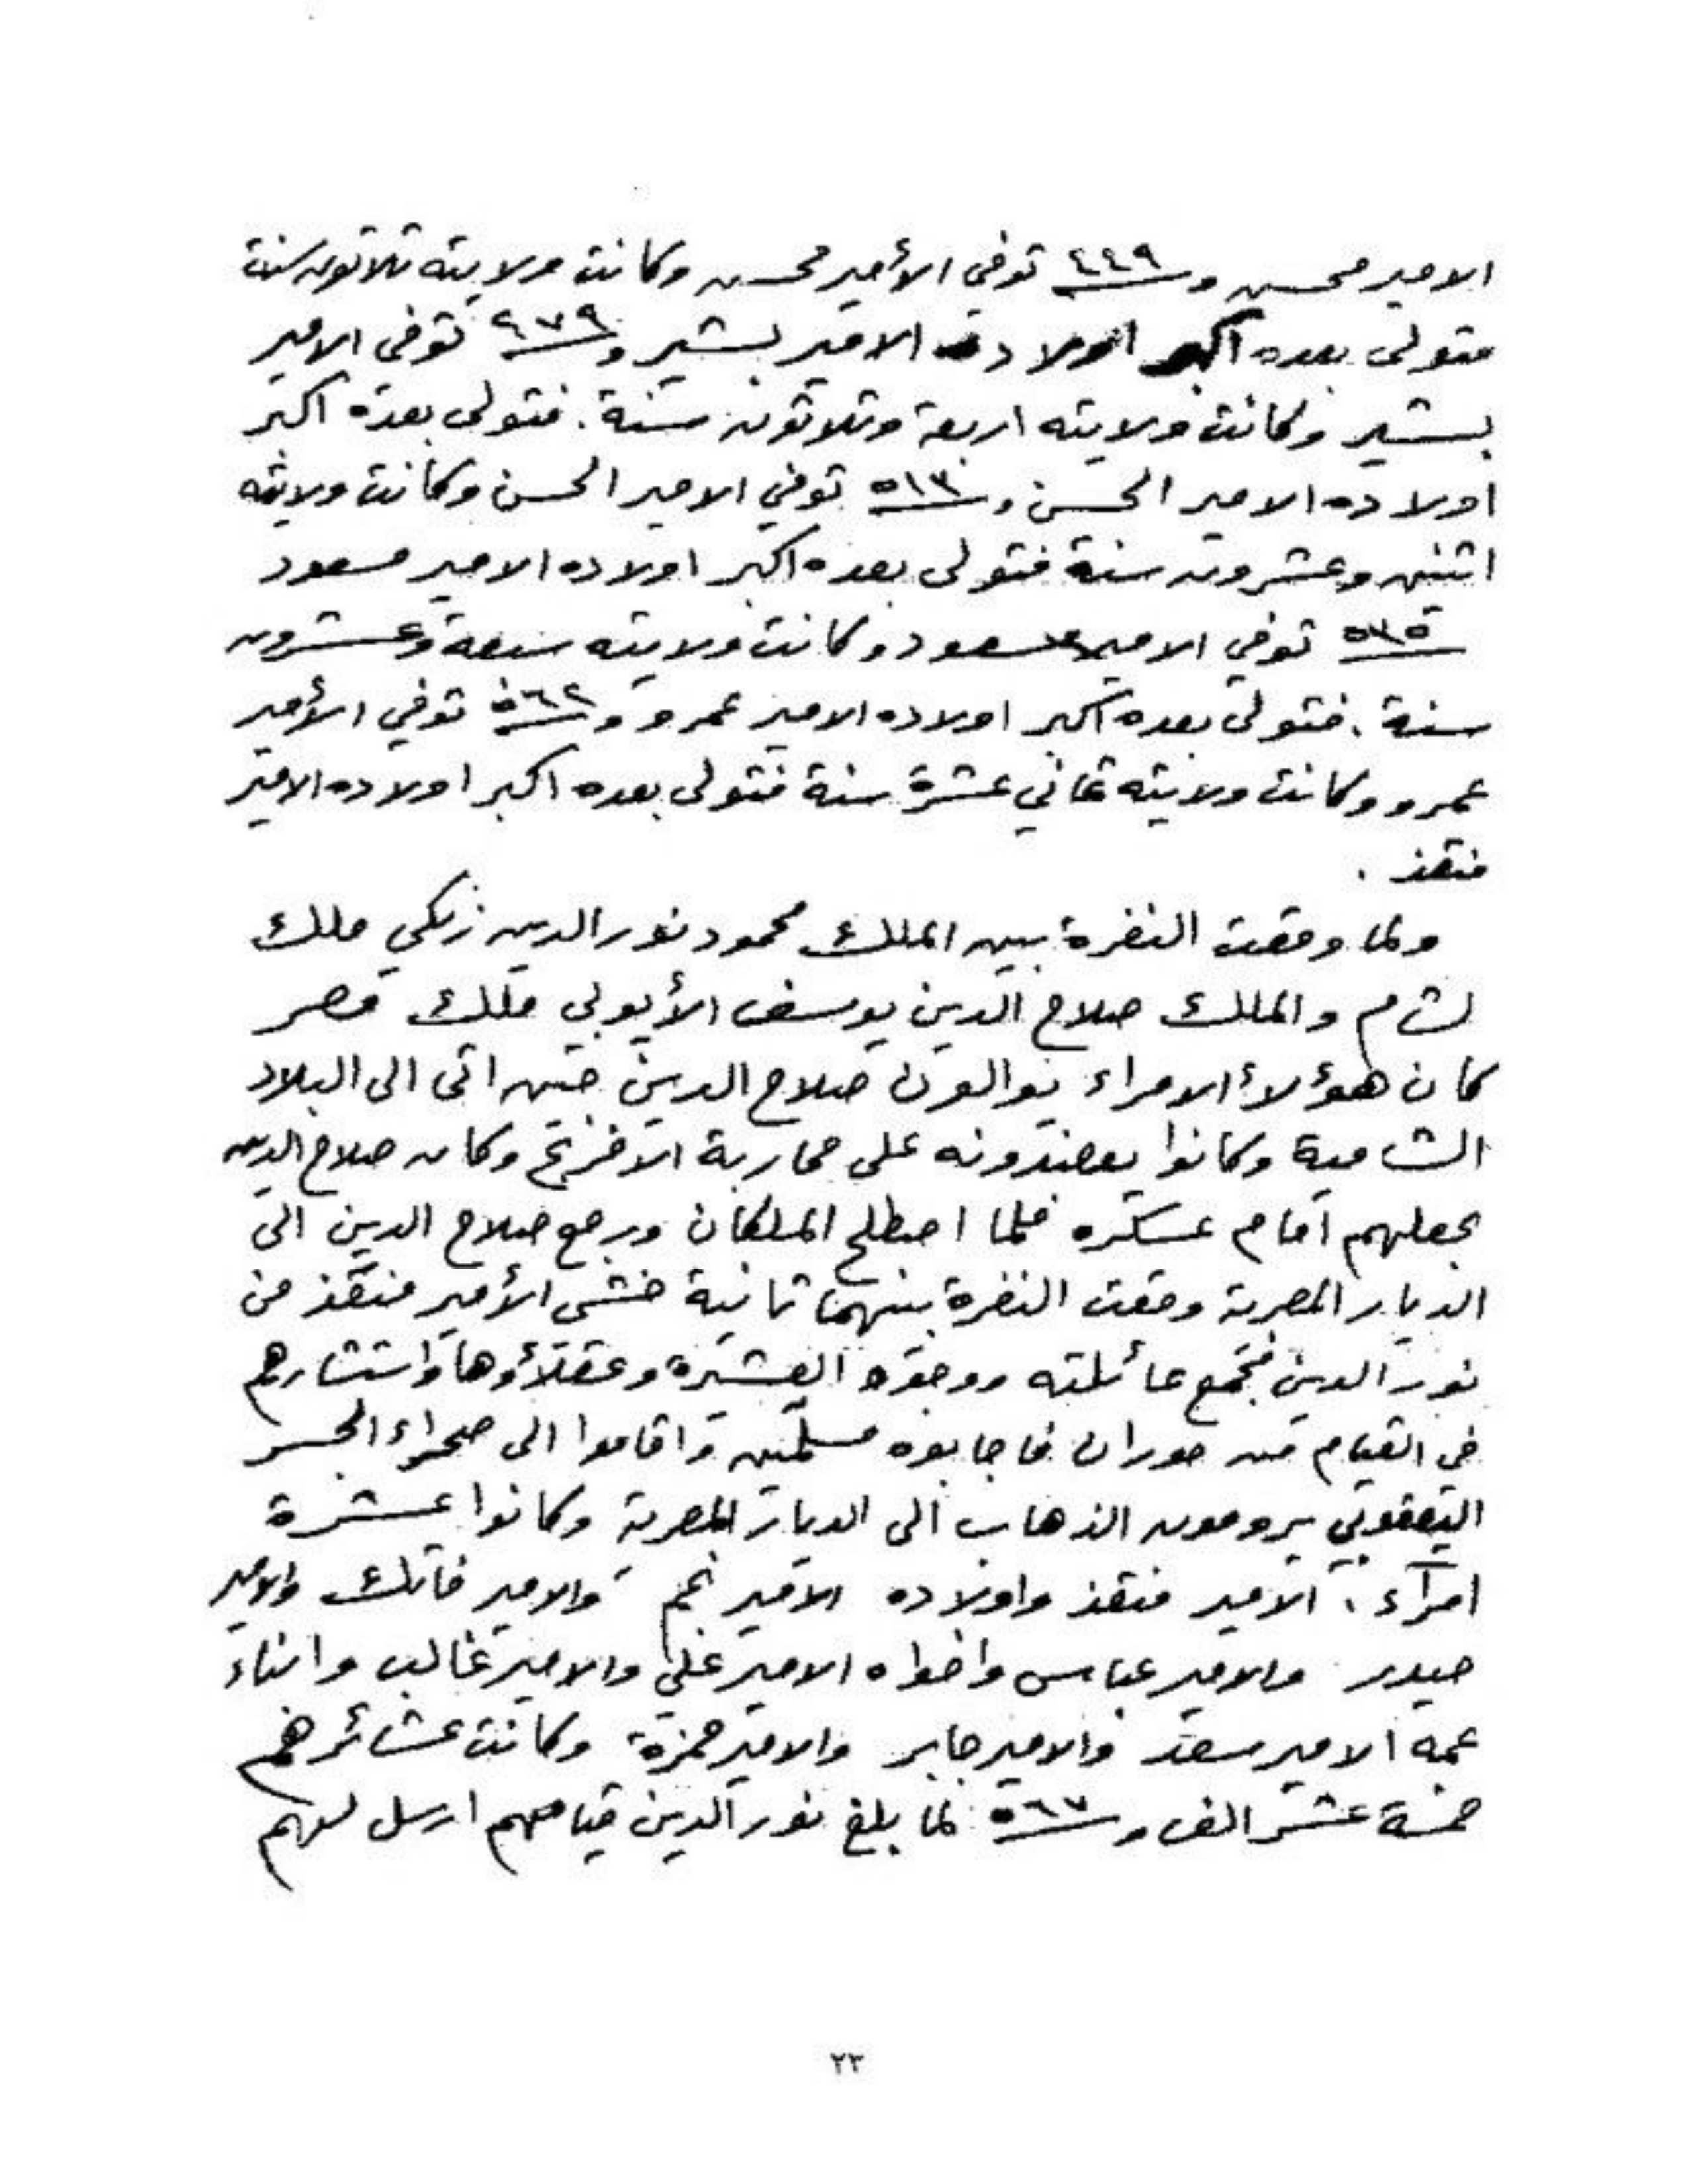 الامير محسن و سنة ٤٤٩ توفي الأمير محسن وكانت ولايته ثلاثون سنة
فتولى بعده اكبر اولاده الامير بشير و سنة ٤٧٩ توفى الامير
بشير وكانت ولايته اربعة وثلاثون سنة . فتولى بعده اكبر
اولاده الامير الحسن و سنة ٥١٣ توفي الامير الحسن وكانت ولايته
اثنين وعشرون سنة فتولى بعده اكبر اولاده الامير مسعود
سنة ٥٣٥ توفي الامير مسعود وكانت ولايته سبعة وعشرون
سنة . فتولى بعده اكبر اولاده الامير عمرو و سنة ٥٦٢ توفي الأمير
عمرو وكانت ولايته ثماني عشرة سنة فتولى بعده اكبر اولاده الامير
منقذ .
ولما وقعت النفرة بين الملك محمود نور الدين زنكي ملك
لشام والملك صلاح الدين يوسف الأيوبي ملك مصر
كان هؤلاء الامراء يوالون صلاح الدين حين اتى الى البلاد
الشامية وكانوا يعضدونه على محاربة الافرنج وكان صلاح الدين
يجعلهم امام عسكره فلما اصطلح الملكان ورجع صلاح الدين الى
الديار المصرية وقعت النفرة بينهما ثانية خشى الأمير منقذ من
نور الدين فجمع عائلته ووجوه العشيرة وعقلاؤها واستشارهم
في القيام من حوران فاجابوه مسلمين وقاموا الى صحراء الجسر
اليعقوبي يرومون الذهاب الى الديار المصرية وكانوا عشرة
امراء . الامير منقذ واولاده الامير نجم والامير فاتك والامير
حيدر والامير عباس واخواه الامير علي والامير غالب وابناء
عمه الامير سعد والامير جابر والامير حمزة وكانت عشائرهم
خمسة عشر الف و سنة ٥٦٧ لما بلغ نور الدين قيامهم ارسل لهم
٢٣